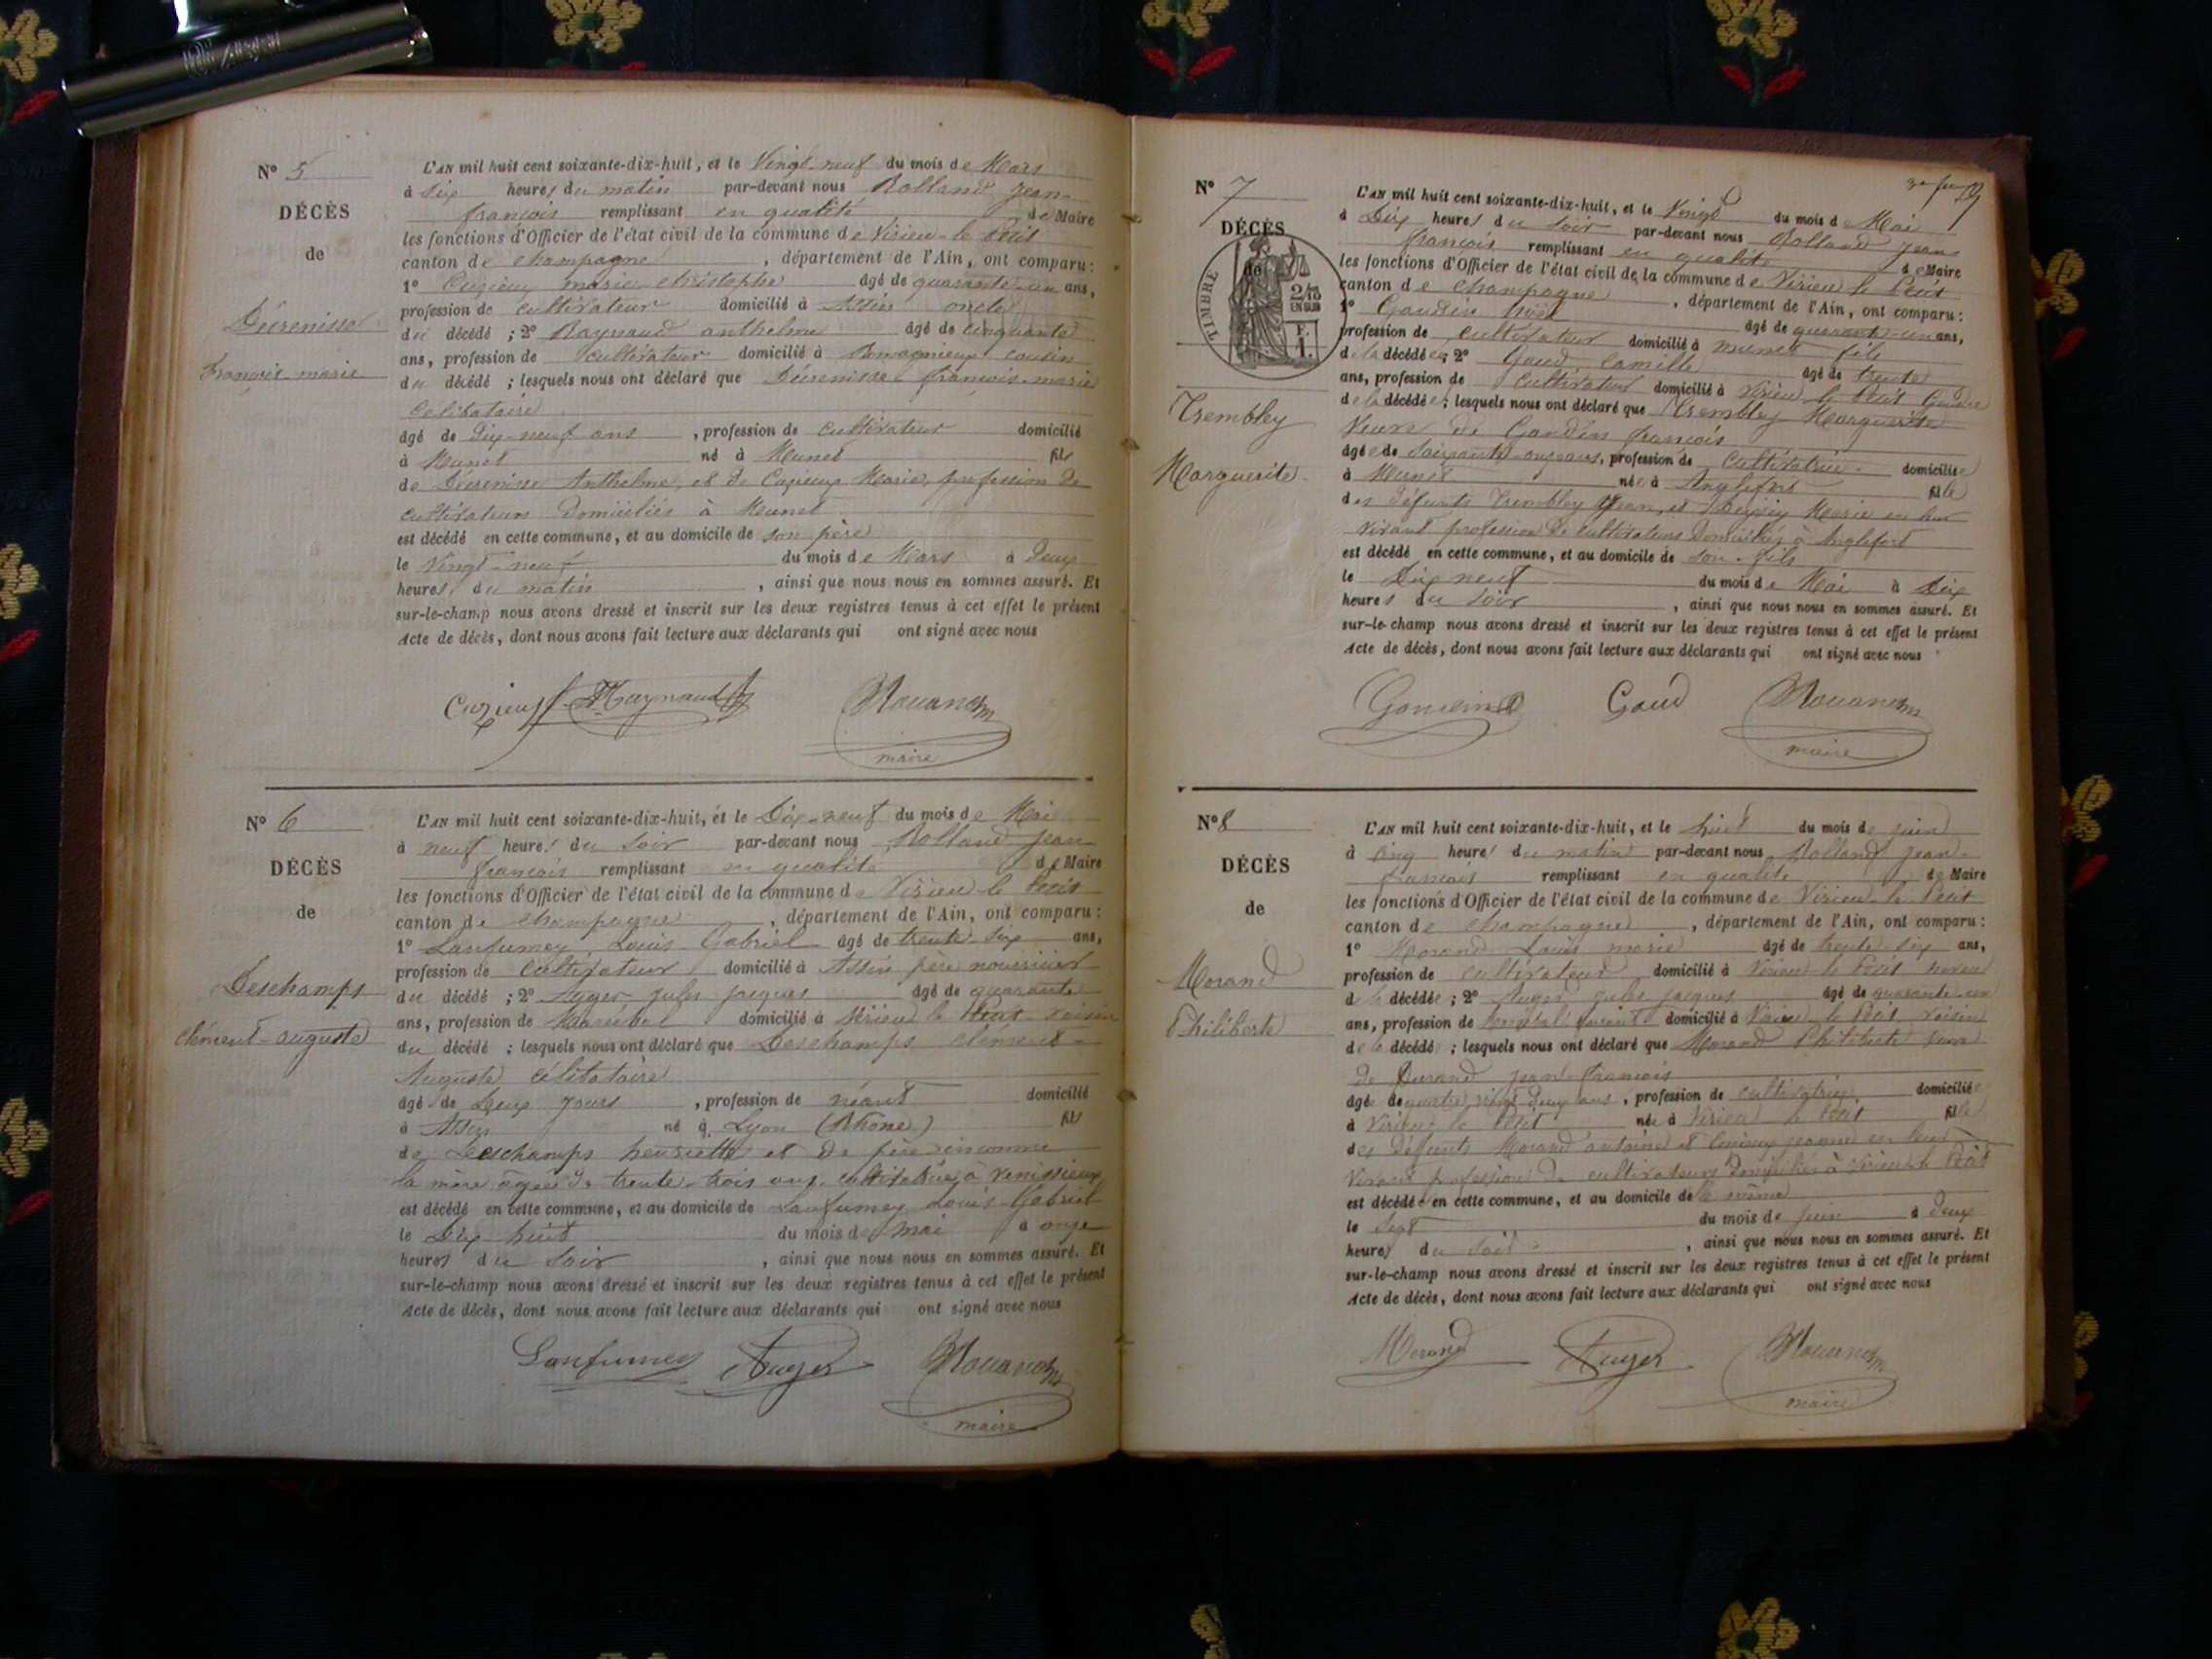 N° 5
DÉCÈS
de
François-marie
L'AN mil huit cent soixante-dix-huit, et le Vingt-neuf du mois de Mars
à six heures du matin par-devant nous Rolland Jean-
françois remplissant en qualité de Maire
les fonctions d'Officier de l'état civil de la commune de Virieu-le Petit
canton de Champagne, département de l'Ain, ont comparu :
1° Cuzieux marie christophe âgé de quarante-un ans,
profession de cultivateur domicilié à Assin oncle
du décédé ; 2° Raynaud anthelme âgé de cinquante
ans, profession de cultivateur domicilié à cousin
du décédé ; lesquels nous ont déclaré que françois-marie
Celibataire
âgé de Dix-neuf ans, profession de cultivateur domicilié
à Munet né à Munet fils
de Anthelme, et de Cuzieux Marie, profession de
cultivateurs domiciliés à Munet
est décédé en cette commune, et au domicile de son père
le Vingt-neuf du mois de Mars à Deux
heures du matin, ainsi que nous nous en sommes assuré. Et
sur-le-champ nous avons dressé et inscrit sur les deux registres tenus à cet effet le présent
Acte de décès, dont nous avons fait lecture aux déclarants qui ont signé avec nous
Cuzieux Raynaud
maire
N° 6
DÉCÈS
de
Deschamps
Clément-auguste
L'AN mil huit cent soixante-dix-huit, et le Dix-neuf du mois de Mai
à neuf heures du soir par-devant nous Rolland Jean-
françois remplissant en qualité de Maire
les fonctions d'Officier de l'état civil de la commune de Virieu-le Petit
canton de Champagne, département de l'Ain, ont comparu :
1° Lanfumey Louis Gabriel âgé de trente-six ans,
profession de Cultivateur domicilié à Assin père nourricier
du décédé ; 2° Auger jules jacques âgé de quarante
ans, profession de Maréchal domicilié à Virieu le Petit voisin
du décédé ; lesquels nous ont déclaré que Deschamps Clément-
Auguste célibataire
âgé de Deux jours, profession de néant domicilié
à Assin né à Lyon (Rhône) fils
de Deschamps henriette et de père inconnu
la mère âgée de trente-trois ans cultivatrice à Venissieux
est décédé en cette commune, et au domicile de Lanfumey Louis-Gabriel
le Dix huit du mois de mai à onze
heures du soir, ainsi que nous nous en sommes assuré. Et
sur-le-champ nous avons dressé et inscrit sur les deux registres tenus à cet effet le présent
Acte de décès, dont nous avons fait lecture aux déclarants qui ont signé avec nous
Lanfumey Auger
maire
N° 7
DÉCÈS
de
TIMBRE
Trembley
Marguerite
L'AN mil huit cent soixante-dix-huit, et le Vingt du mois de Mai
à Dix heures du soir par-devant nous Rolland Jean
françois remplissant en qualité de Maire
les fonctions d'Officier de l'état civil de la commune de Virieu le Petit
canton de Champagne, département de l'Ain, ont comparu :
1° Gaudin âgé de quarante-un ans,
profession de cultivateur domicilié à munet fils
de la décédée ; 2° Goud Camille âgé de trente
ans, profession de Cultivateur domicilié à Virieu le Petit Gendre
de la décédée ; lesquels nous ont déclaré que Trembley Marguerite
Veuve de Gaudin françois
âgée de Soixante-onze ans, profession de Cultivatrice domiciliée
à Munet née à Anglefort fille
des défunts Trembley Jean, et Marie en leur
vivant profession de cultivateurs Domiciliés à Anglefort
est décédé en cette commune, et au domicile de son fils
le Dix neuf du mois de Mai à Dix
heures du soir, ainsi que nous nous en sommes assuré. Et
sur-le-champ nous avons dressé et inscrit sur les deux registres tenus à cet effet le présent
Acte de décès, dont nous avons fait lecture aux déclarants qui ont signé avec nous
Goud
maire
N° 8
DÉCÈS
de
Morand
Philiberte
L'AN mil huit cent soixante-dix-huit, et le huit du mois de juin
à cinq heures du matin par-devant nous Rolland Jean-
françois remplissant en qualité de Maire
les fonctions d'Officier de l'état civil de la commune de Virieu-le-Petit
canton de Champagne, département de l'Ain, ont comparu :
1° Morand Louis marie âgé de trente-six ans,
profession de cultivateur domicilié à Virieu-le Petit neveu
de la décédée ; 2° Auger jules jacques âgé de quarante-un
ans, profession de Maréchal domicilié à Virieu-le Petit voisin
de la décédée ; lesquels nous ont déclaré que Morand Philiberte veuve
de Durand jean-francois
âgée de quatre vingt deux ans, profession de cultivatrice domiciliée
à Virieu le Petit née à Virieu le Petit fille
des Défunts Morand antoine et jeanne en leur
vivant profession de cultivateurs Domiciliés à Virieu-le Petit
est décédée en cette commune, et au domicile de le même
le Sept du mois de juin à Deux
heures du soir, ainsi que nous nous en sommes assuré. Et
sur-le-champ nous avons dressé et inscrit sur les deux registres tenus à cet effet le présent
Acte de décès, dont nous avons fait lecture aux déclarants qui ont signé avec nous
Morand Auger
maire